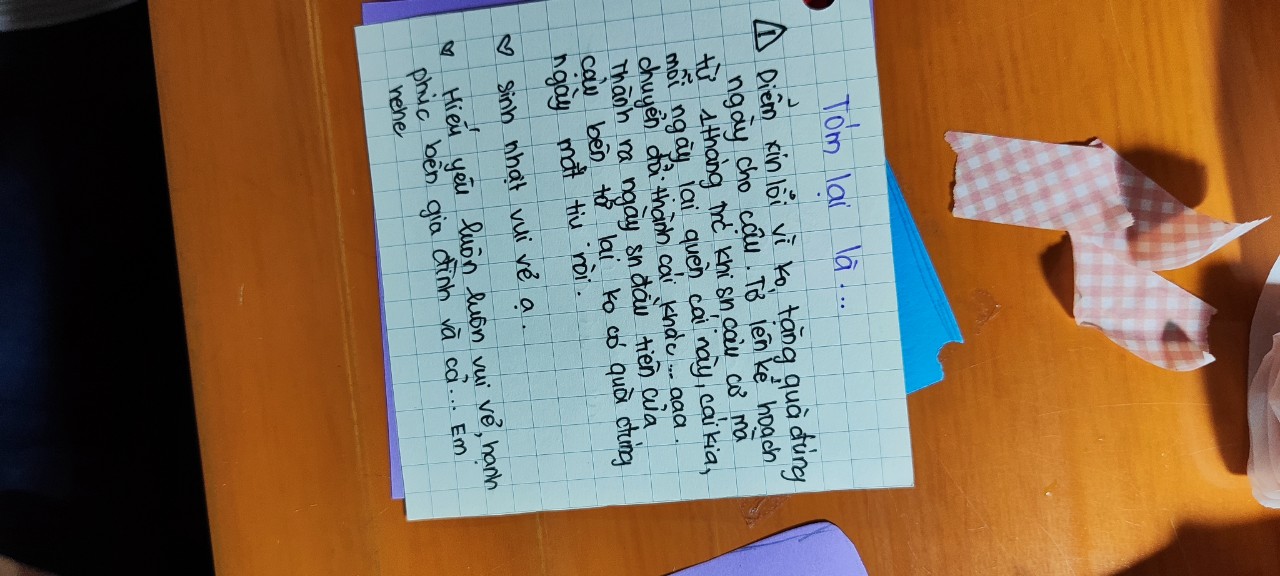 Tóm lại là...
! Diễm xin lỗi vì ko tặng quà đúng
ngày cho cậu. Tớ lên kế hoạch
từ 1 tháng trc khi sn cậu cơ mà
mỗi ngày lại quên cái này, cái kia,
chuyển đổi thành cái khác... aaa.
Thành ra ngày sn đầu tiên của
cậu bên tớ lại ko có quà đúng
ngày mất tiu rồi.
♡ sinh nhật vui vẻ ạ.
♡ Hiếu yêu luôn luôn vui vẻ, hạnh
phúc bên gia đình và cả... Em
nehe